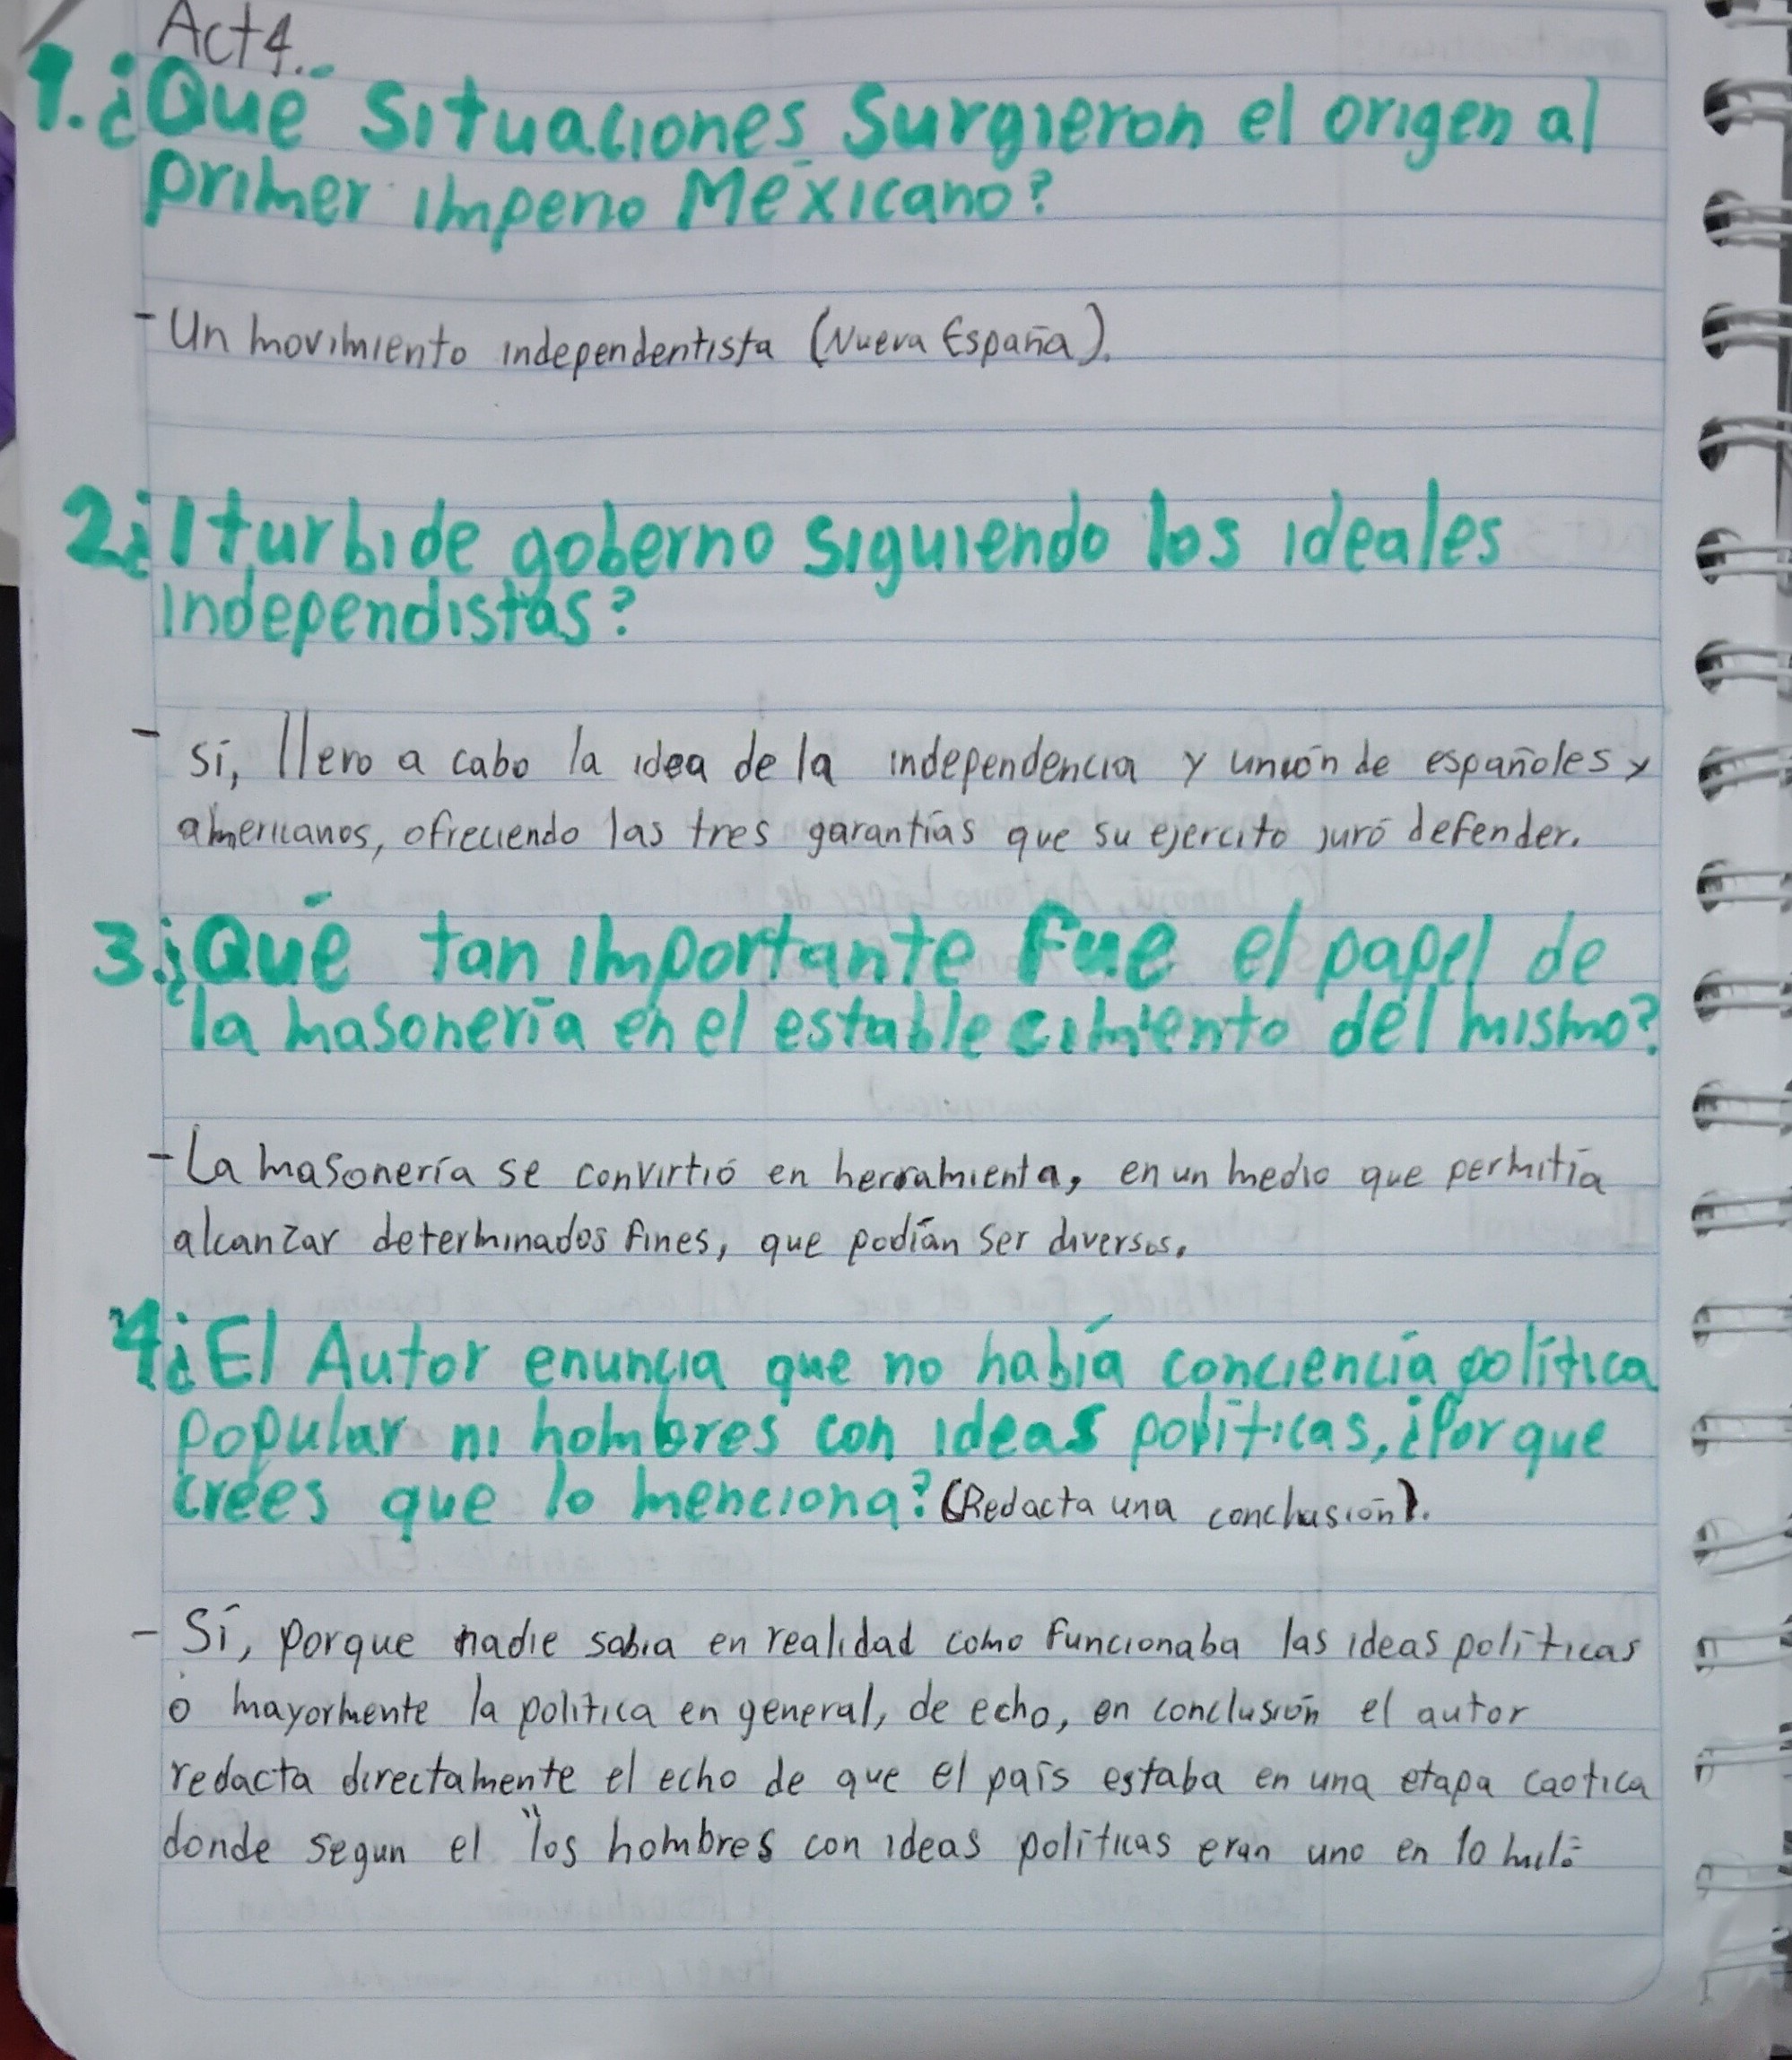 Act 4.-
1.¿Qué Situaciones Surgieron el origen al
primer imperio Mexicano?
- Un movimiento independentista (Nueva España).
2¿Iturbide goberno siguiendo los ideales
independistas?
- sí, llevo a cabo la idea de la independencia y unión de españoles y
americanos, ofreciendo las tres garantías que su ejercito juró defender.
3.¿Qué tan importante fue el papel de
la masonería en el establecimiento del mismo?
- La masonería se convirtió en herramienta, en un medio que permitía
alcanzar determinados fines, que podían ser diversos.
4¿El Autor enuncia que no había conciencia política
popular ni hombres con ideas políticas, ¿Por que
crées que lo menciona? (Redacta una conclusión).
- Sí, porque nadie sabia en realidad como funcionaba las ideas políticas
o mayormente la política en general, de echo, en conclusión el autor
redacta directamente el echo de que el país estaba en una etapa caotica
donde segun el "los hombres con ideas políticas eran uno en 10 mil"